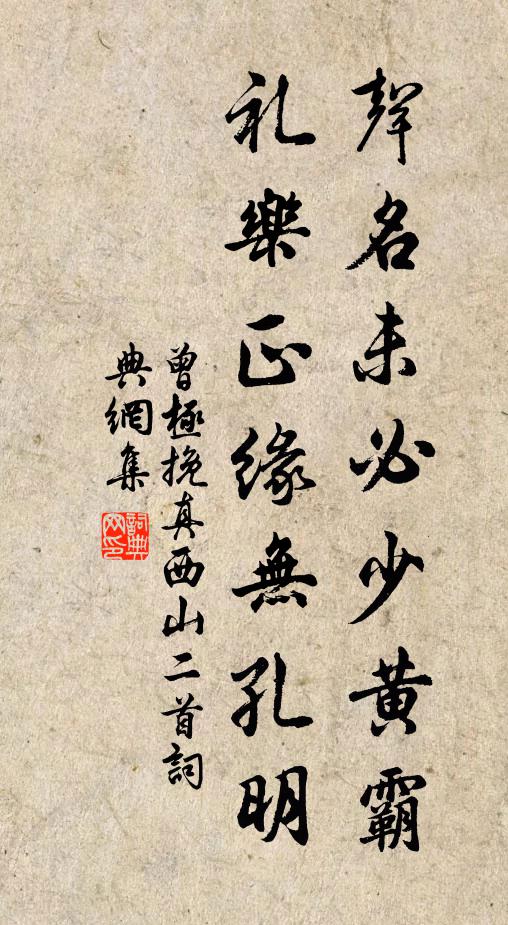 聲名未必少黄霸
礼樂正緣無孔明
曾極挽真西山二首詞
典網集
詞典網印